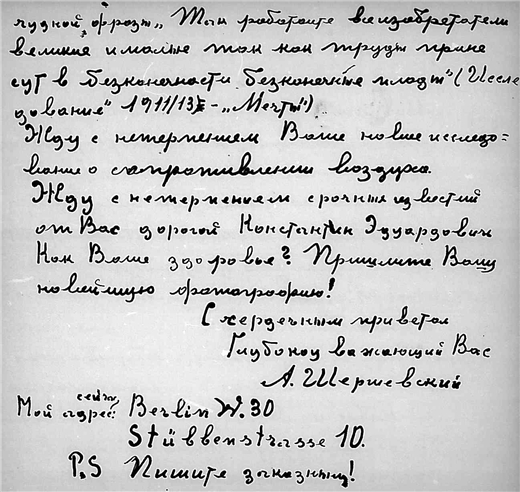 чудной фразы „Так работайте все изобретатели
великие и малые так как труды прине
сут в безконечности безконечные плоды" (Иссле
дование" 1911/13 г - „Мечты")
Жду с нетерпением Ваше новые исследо=
вание о сопротивлении воздуха.
Жду с нетерпением срочных известий
от Вас дорогой Константин Эдуардович
Как Ваше здоровье? Пришлите Вашу
новейшую фотографию!
С сердечным приветом
Глубокоуважающий Вас
А. Шершевский
сейчас
Мой адрес: Berlin W. 30
Stübbenstrasse 10.
P.S Пишите заказным!